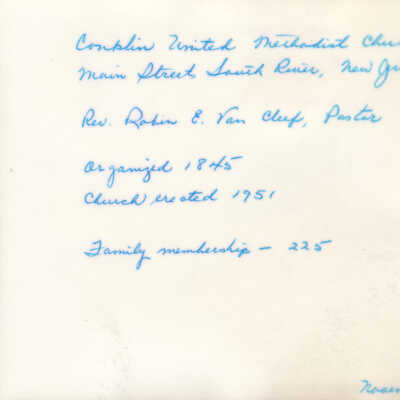 Conklin United Methodist Chu
Main Street South River, New Je
Rev. Robin E. Van Cleef, Pastor
Organized 1845
Church erected 1951
Family membership — 225
Novem